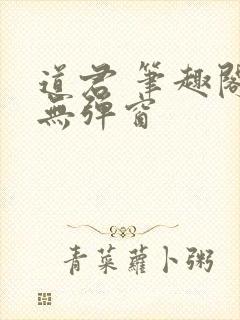 道君 筆趣閣
無彈窗
青菜蘿卜粥